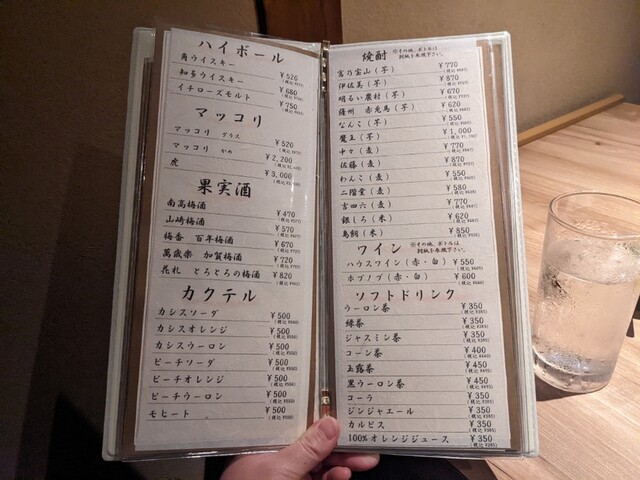 ハイボール
角ウイスキー ¥520
知多ウイスキー ¥680
イチローズモルト ¥750
マッコリ
マッコリ グラス ¥520
マッコリ かめ ¥2,200
虎 ¥3,000
果実酒
南高梅酒 ¥470
山崎梅酒 ¥570
梅香 百年梅酒 ¥670
萬歳楽 加賀梅酒 ¥720
花札 とろとろの梅酒 ¥820
カクテル
カシスソーダ ¥500
カシスオレンジ ¥500
カシスウーロン ¥500
ピーチソーダ ¥500
ピーチオレンジ ¥500
ピーチウーロン ¥500
モヒート ¥500
焼酎 ※その他、ボトルは
別紙を参照下さい。
富乃宝山(芋) ¥770
伊佐美(芋) ¥870
明るい農村(芋) ¥670
薩州 赤兎馬(芋) ¥620
なんこ(芋) ¥550
魔王(芋) ¥1,000
中々(麦) ¥770
佐藤(麦) ¥870
わんこ(麦) ¥550
二階堂(麦) ¥580
吉四六(麦) ¥770
銀しろ(米) ¥620
鳥飼(米) ¥850
ワイン ※その他、ボトルは
別紙を参照下さい。
ハウスワイン(赤・白) ¥550
ホブノブ(赤・白) ¥600
ソフトドリンク
ウーロン茶 ¥350
緑茶 ¥350
ジャスミン茶 ¥350
コーン茶 ¥400
玉露茶 ¥450
黒ウーロン茶 ¥450
コーラ ¥350
ジンジャエール ¥350
カルピス ¥350
100%オレンジジュース ¥350